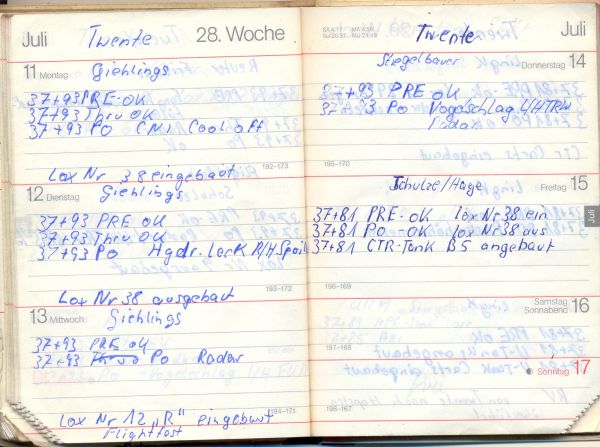 Juli
Twente
28. Woche
11 Montag
Giehlings
37+93 PRE-OK
37+93 Thru OK
37+93 PO CNI Cool off
Lox Nr 38 eingebaut
192-173
12 Dienstag
Giehlings
37+93 PRE OK
37+93 Thru OK
37+93 PO Hydr. Leck R/H Spoil
Lox Nr 38 ausgebaut
193-172
13 Mittwoch
Giehlings
37+93 PRE OK
37+93 PO Radar
Lox Nr 12 "R" eingebaut
Flightfast
194-171
Twente
Juli
Stiegelbauer
Donnerstag 14
37+93 PRE OK
37+93 PO Vogelschlag L/H TRW
Radar
195-170
Schulze/Hage
Freitag 15
37+81 PRE-OK Lox Nr 38 ein
37+81 PO-OK Lox Nr 38 aus
37+81 CTR-Tank BS angebaut
196-169
Juli
Samstag
Sonnabend 16
197-168
Sonntag 17
198-167